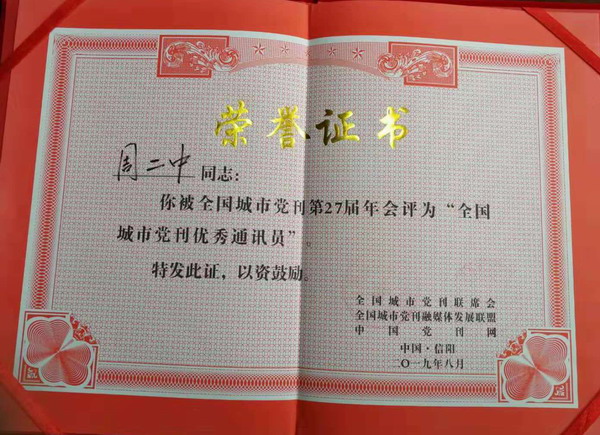 荣誉证书
周二中 同志：
你被全国城市党刊第27届年会评为“全国
城市党刊优秀通讯员”。
特发此证，以资鼓励。
全国城市党刊联席会
全国城市党刊融媒体发展联盟
中国党刊网
中国·信阳
二〇一九年八月